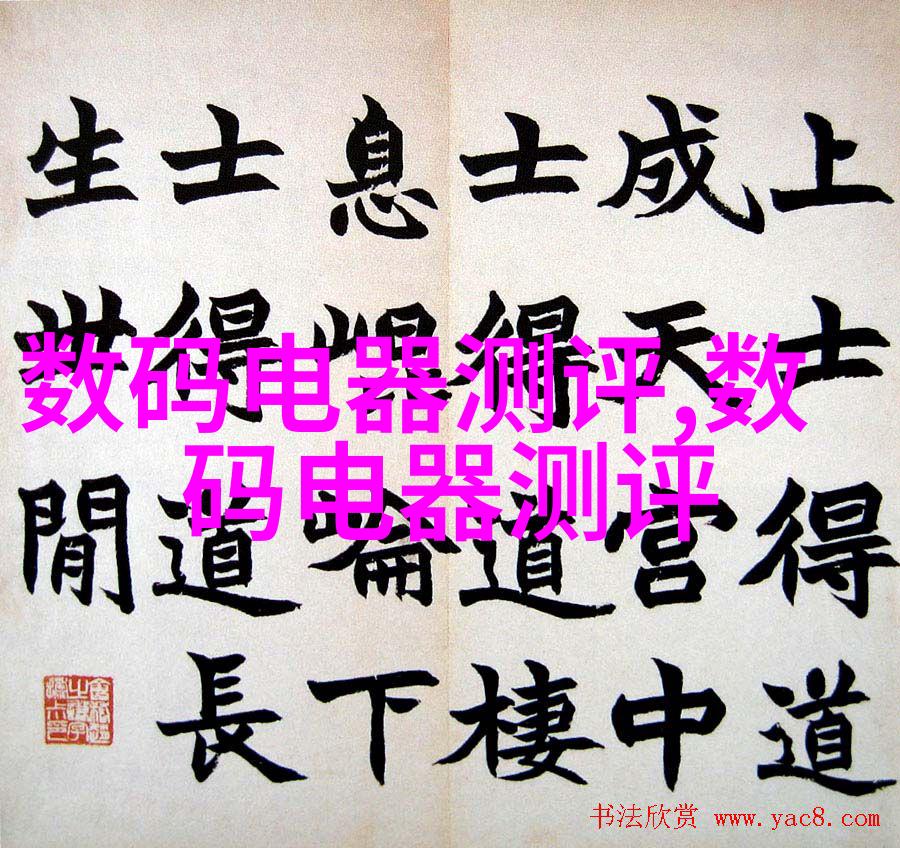 上士得道
成天官中
士得道棲
息崐崘下
士得道長
生世閒
数码电器测评,数
码电器测评
书法欣赏 www.yac8.com